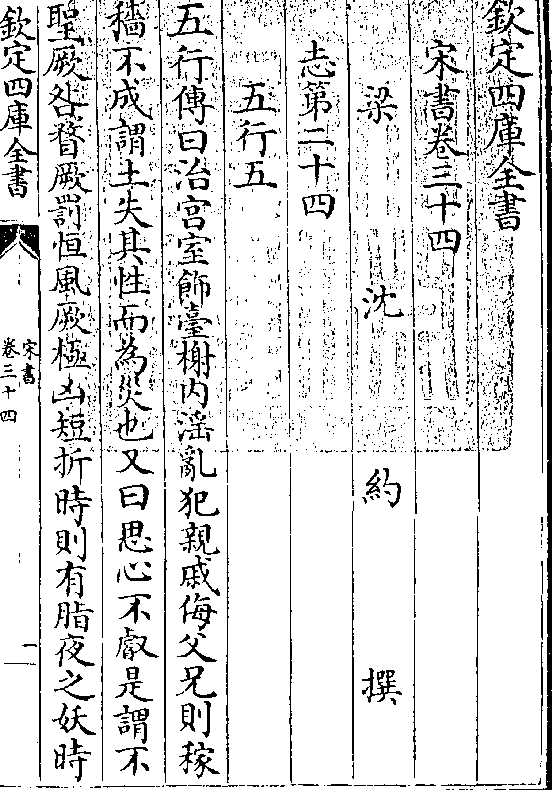 欽定四庫全書
宋書卷三十四
梁沈約撰
志第二十四
五行五
五行傳曰治宫室飾臺榭内淫亂犯親戚侮父兄則稼
穡不成謂土失其性而為災也又曰思心不叡是謂不
聖厥咎瞀厥罰恒風厥極凶短折時則有脂夜之妖時
欽定四庫全書
宋書
卷三十四
一